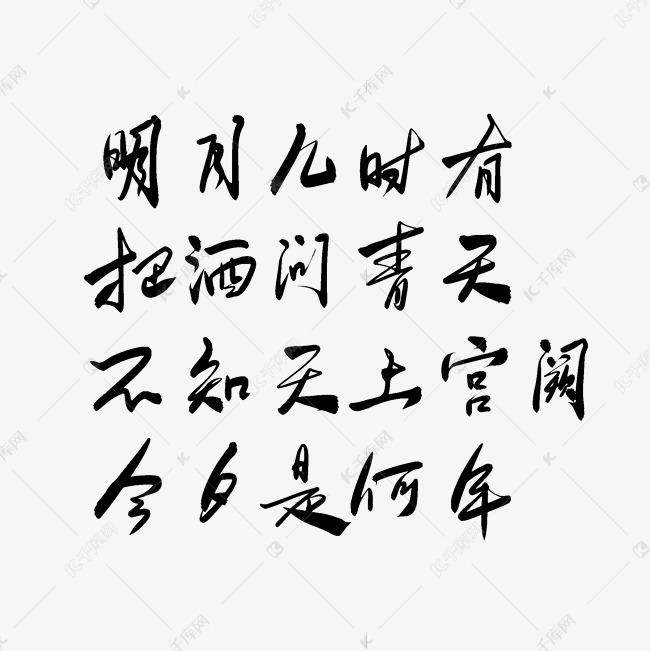 明月几时有
把酒问青天
不知天上宫阙
今夕是何年